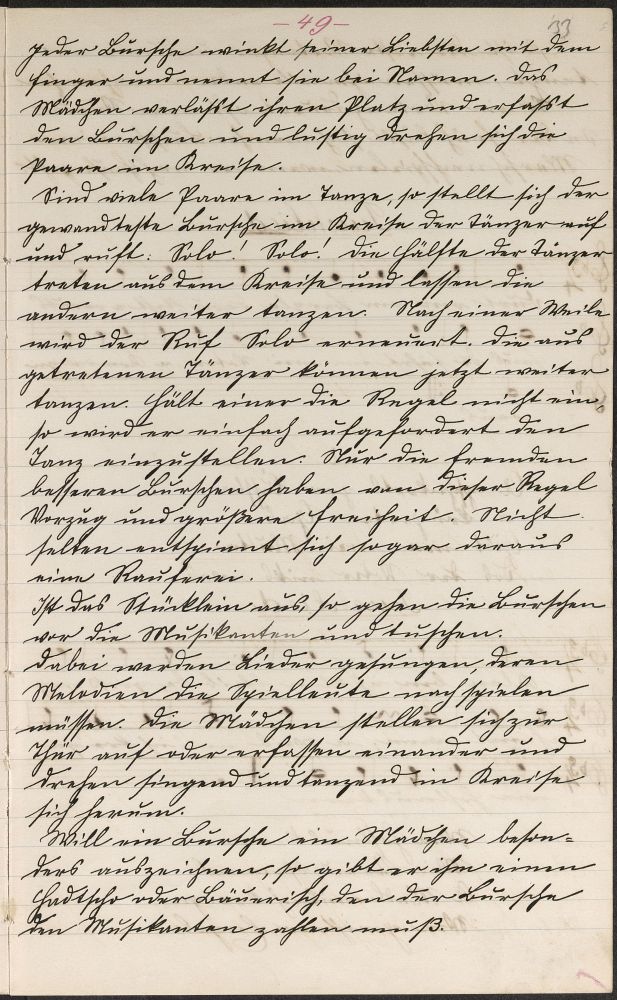 - 49 -
33
Jeder Bursche winkt seiner Liebsten mit dem
Finger und nennt sie bei Namen. Das
Mädchen verläßt ihren Platz und erfaßt
den Burschen und lustig drehen sich die
Paare im Kreise.
Sind viele Paare im Tanze, so stellt sich der
gewandteste Bursche im Kreise der Tänzer auf
und ruft: Solo! Solo! Die Hälfte der Tänzer
treten aus dem Kreise und lassen die
andern weiter tanzen. Nach einer Weile
wird der Ruf Solo erneuert. Die aus
getretenen Tänzer können jetzt weiter
tanzen. Hält einer die Regel nicht ein,
so wird er einfach aufgefordert den
Tanz einzustellen. Nur die fremden
besseren Burschen haben von dieser Regel
Vorzug und größere Freiheit. Nicht
selten entspinnt sich sogar daraus
eine Rauferei.
Ist das Stücklein aus, so gehen die Burschen
vor die Musikanten und tuschen.
Dabei werden Lieder gesungen, deren
Melodien die Spielleute nachspielen
müssen. Die Mädchen stellen sich zur
Thür auf oder erfassen einander und
drehen singend und tanzend im Kreise
sich herum.
Will ein Bursche ein Mädchen beson=
ders auszeichnen, so gibt er ihm einen
Hadtscho oder Bäuerisch, den der Bursche
den Musikanten zahlen muß.